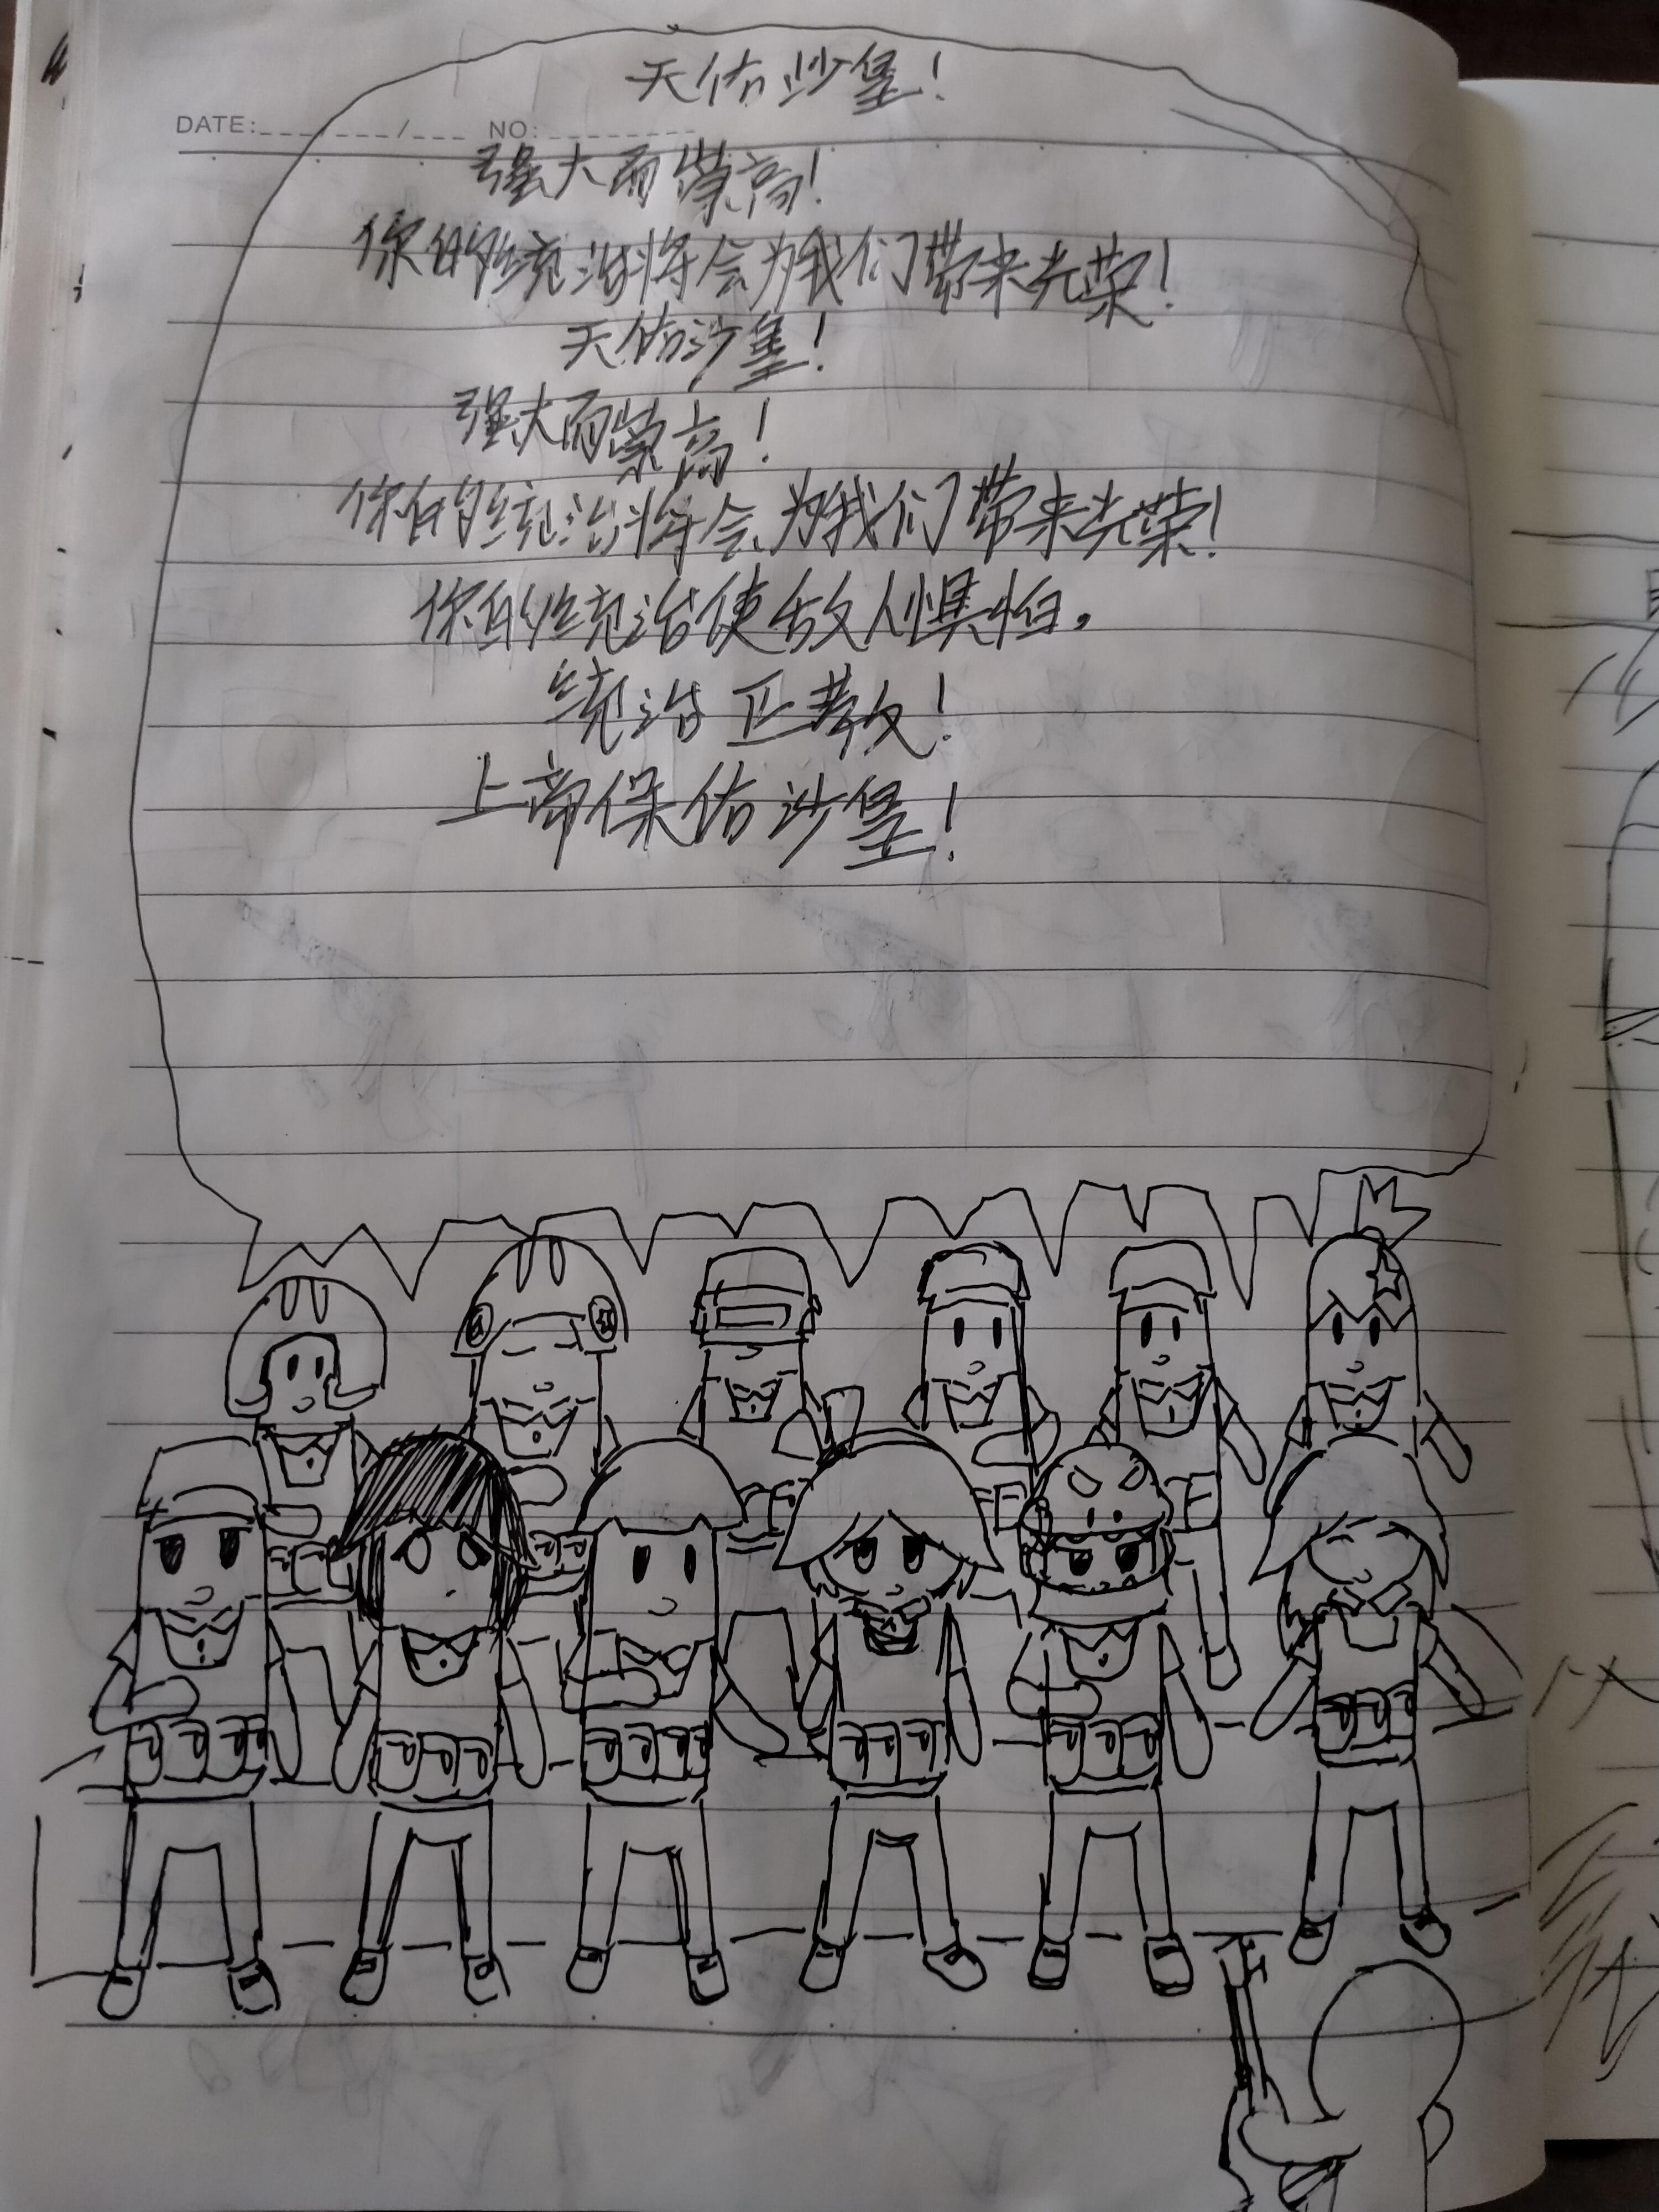 天佑沙堡！
DATE: / NO:
强大而崇高！
你的统治将会为我们带来光荣！
天佑沙堡！
强大而崇高！
你的统治将会为我们带来光荣！
你的统治使敌人惧怕，
统治正教！
上帝保佑沙堡！